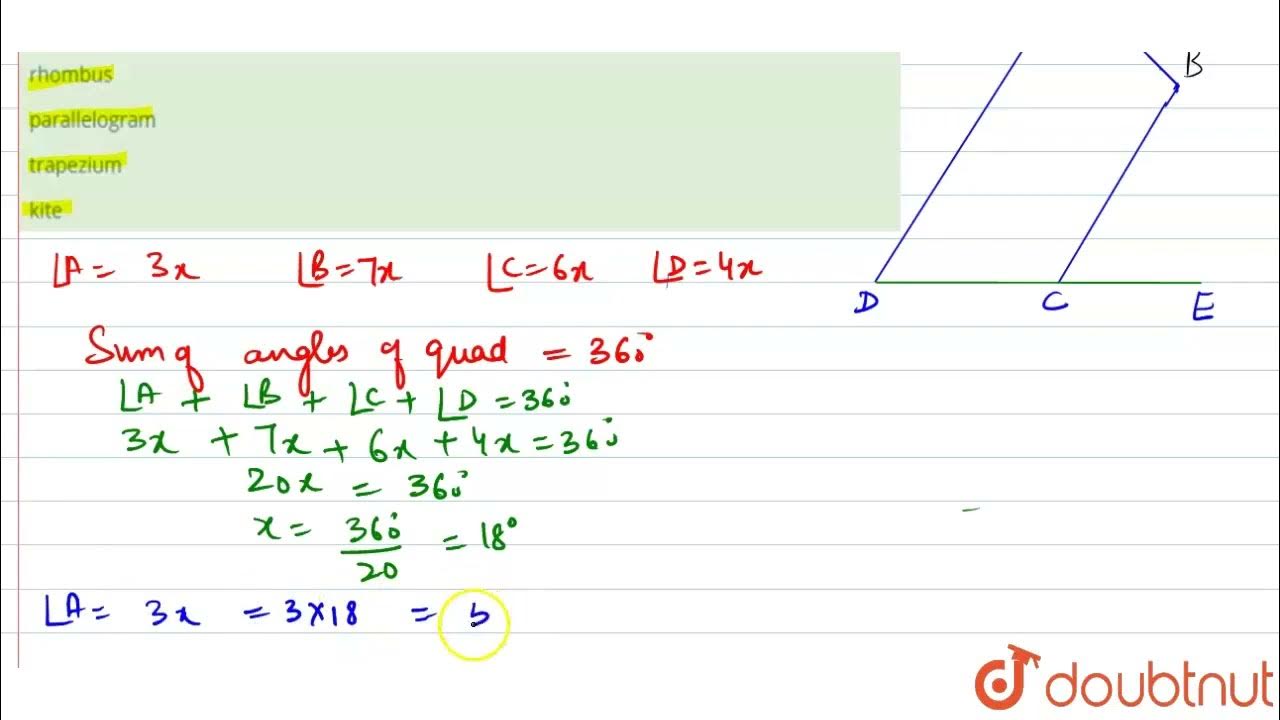 rhombus
parallelogram
trapezium
kite
B
D C E
∠A = 3x ∠B = 7x ∠C = 6x ∠D = 4x
Sum of angles of quad = 360°
∠A + ∠B + ∠C + ∠D = 360°
3x + 7x + 6x + 4x = 360°
20x = 360°
x = 360°/20 = 18°
∠A = 3x = 3×18 = 5
doubtnut